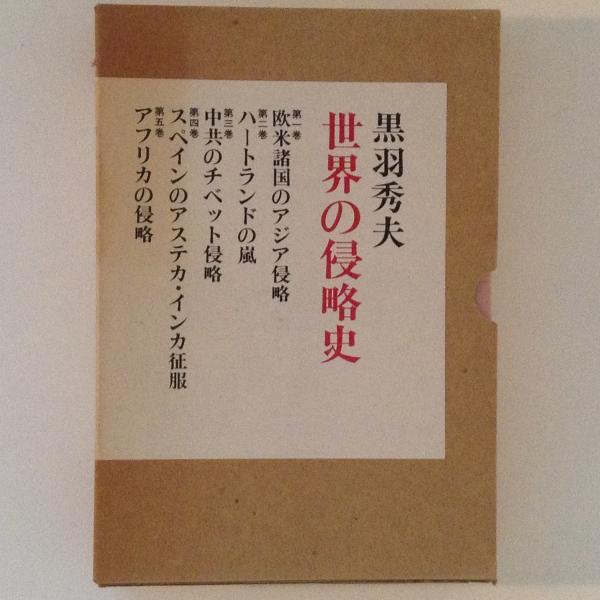 黒羽秀夫
世界の侵略史
第一巻
欧米諸国のアジア侵略
第二巻
ハートランドの嵐
第三巻
中共のチベット侵略
第四巻
スペインのアステカ・インカ征服
第五巻
アフリカの侵略